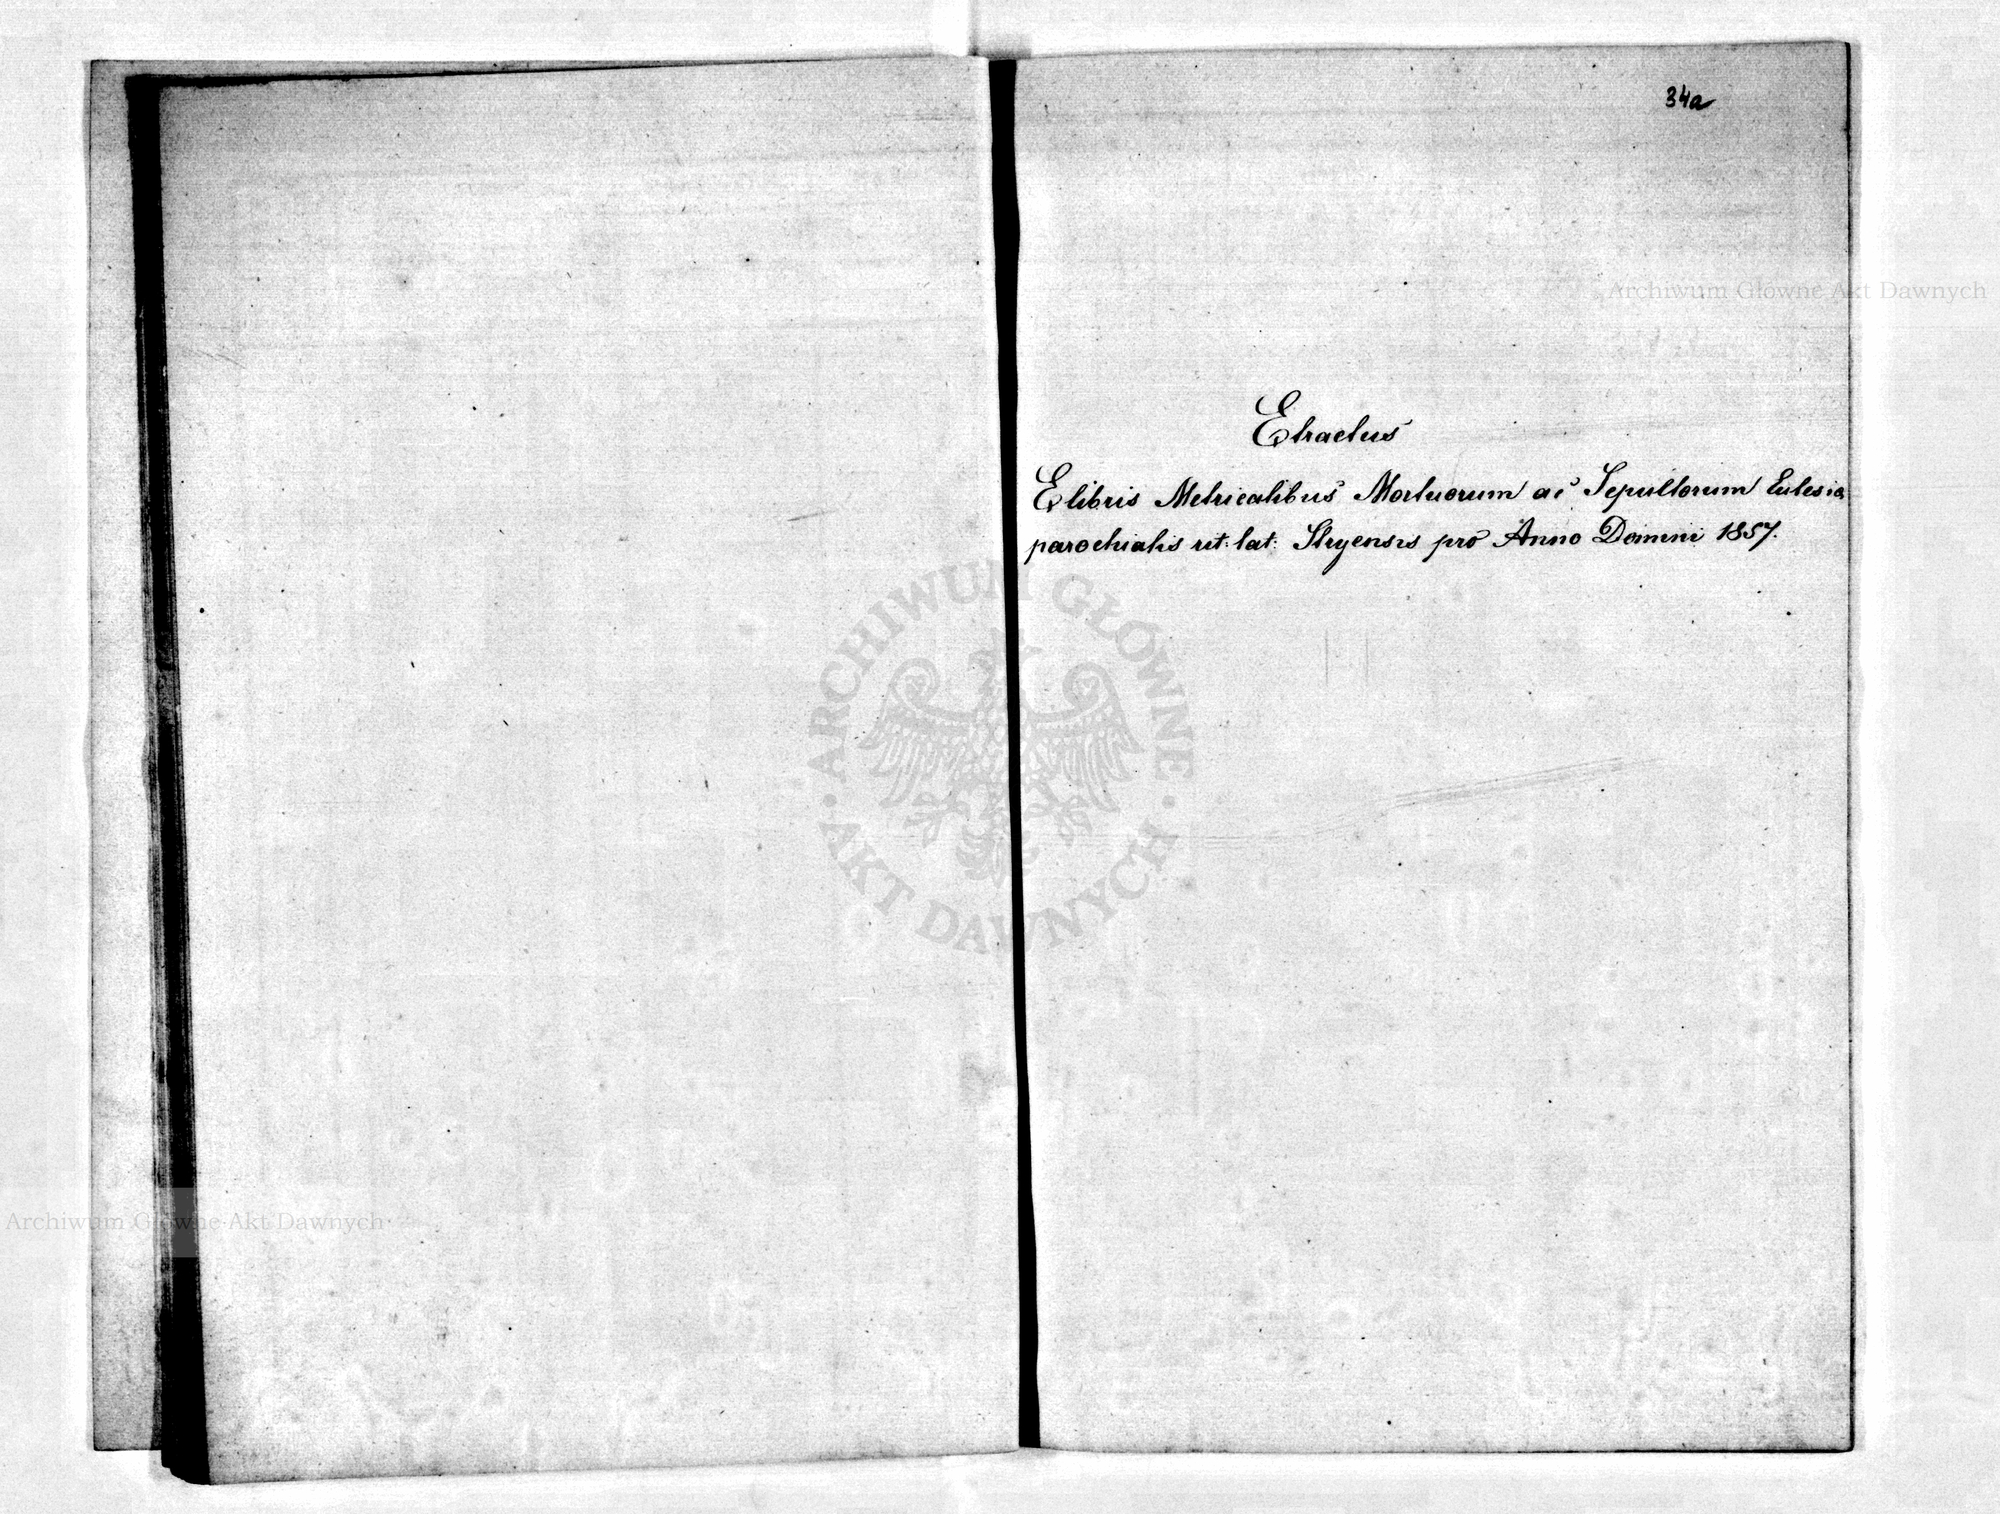 34a
Archiwum Główne Akt Dawnych
Etractus
E libris Metricalibus Mortuorum ac Sepultorum Eclesia
parochialis rit: lat: Stryensis pro Anno Domini 1857.
ARCHIWUM GŁÓWNE
AKT DAWNYCH
Archiwum Główne Akt Dawnych